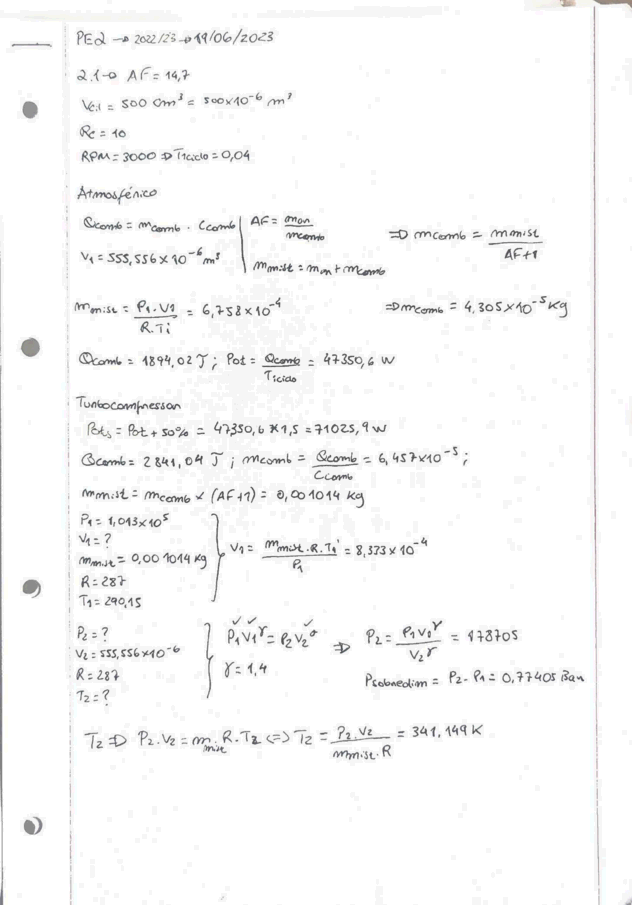 PE2 → 2022/23 → 19/06/2023
2.1→ AF = 14,7
Vcil = 500 cm³ = 500x10⁻⁶ m³
Rc = 10
RPM = 3000 => T1ciclo = 0,04
Atmosférico
Qcomb = mcomb . Ccomb | AF = mar/mcomb => mcomb = mmist/AF+1
V1 = 555,556 x 10⁻⁶ m³ | mmist = mar + mcomb
mmist = P1.V1/R.Ti = 6,758x10⁻⁴ => mcomb = 4,305x10⁻⁵ kg
Qcomb = 1894,02 J ; Pot = Qcomb/T1ciclo = 47350,6 W
Turbocompressor
Pots = Pot + 50% = 47350,6 x 1,5 = 71025,9 W
Qcomb = 2841,04 J ; mcomb = Qcomb/Ccomb = 6,457x10⁻⁵ ;
mmist = mcomb x (AF+1) = 0,001014 kg
P1 = 1,013x10⁵
V1 = ?
mmist = 0,001014 kg } V1 = mmist.R.T1/P1 = 8,373x10⁻⁴
R = 287
T1 = 290,15
P2 = ?
V2 = 555,556x10⁻⁶ } P1V1^γ = P2V2^γ => P2 = P1V1^γ/V2^γ = 178705
R = 287 γ = 1,4
T2 = ? Psobredim = P2 - P1 = 0,77405 Bar
T2 => P2.V2 = mmist.R.T2 <=> T2 = P2.V2/mmist.R = 341,149 K